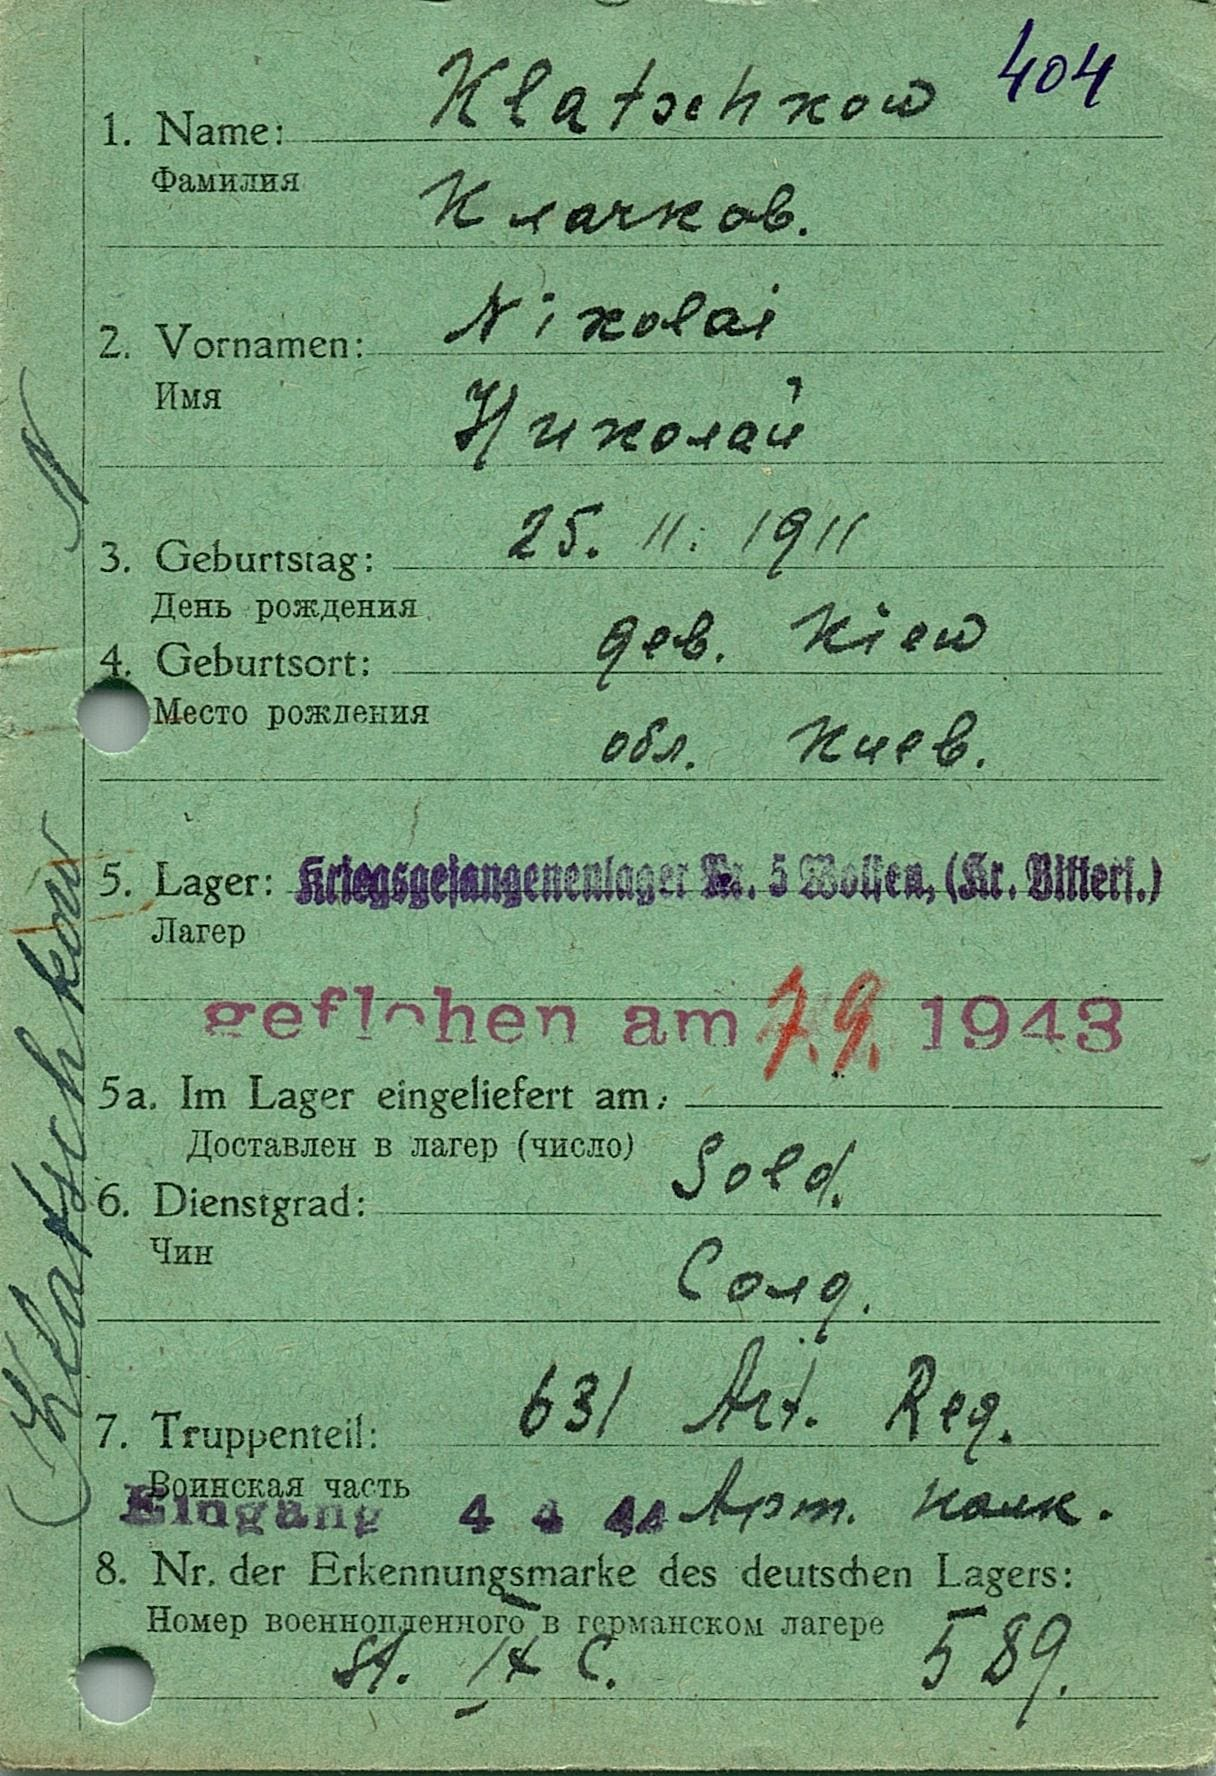 404
Klatschkow
1. Name:
Фамилия
Клачков.
Nikolai
2. Vornamen:
Имя
Николай
25. 11. 1911
3. Geburtstag:
День рождения
дев. Kiew
4. Geburtsort:
Место рождения
обл. Киев.
5. Lager: Kriegsgefangenenlager Nr. 5 Wolfen, (Kr. Bitterf.)
Лагер
geflohen am 7.9. 1943
5a. Im Lager eingeliefert am:
Доставлен в лагер (число)
Sold.
6. Dienstgrad:
Чин
Солд.
631 Art. Reg.
7. Truppenteil:
Воинская часть
Eingang 4 4 44 Арт. полк.
8. Nr. der Erkennungsmarke des deutschen Lagers:
Номер военнопленного в германском лагере
St. IX C. 589.
Klatschkow N